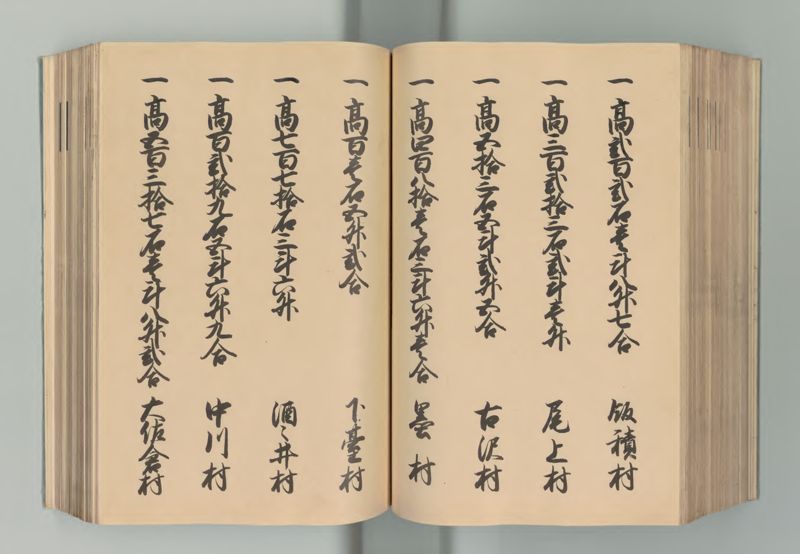 一 高弐百弐石壱斗八升七合 飯積村
一 高三百弐拾三石弐斗壱升 尾上村
一 高五拾三石五斗弐升五合 古沢村
一 高四百八拾壱石三斗六升壱合 墨村
一 高百壱石五升弐合 下臺村
一 高七百七拾石三斗六升 酒々井村
一 高百弐拾九石五斗六升九合 中川村
一 高五百三拾七石壱斗八升弐合 大佐倉村